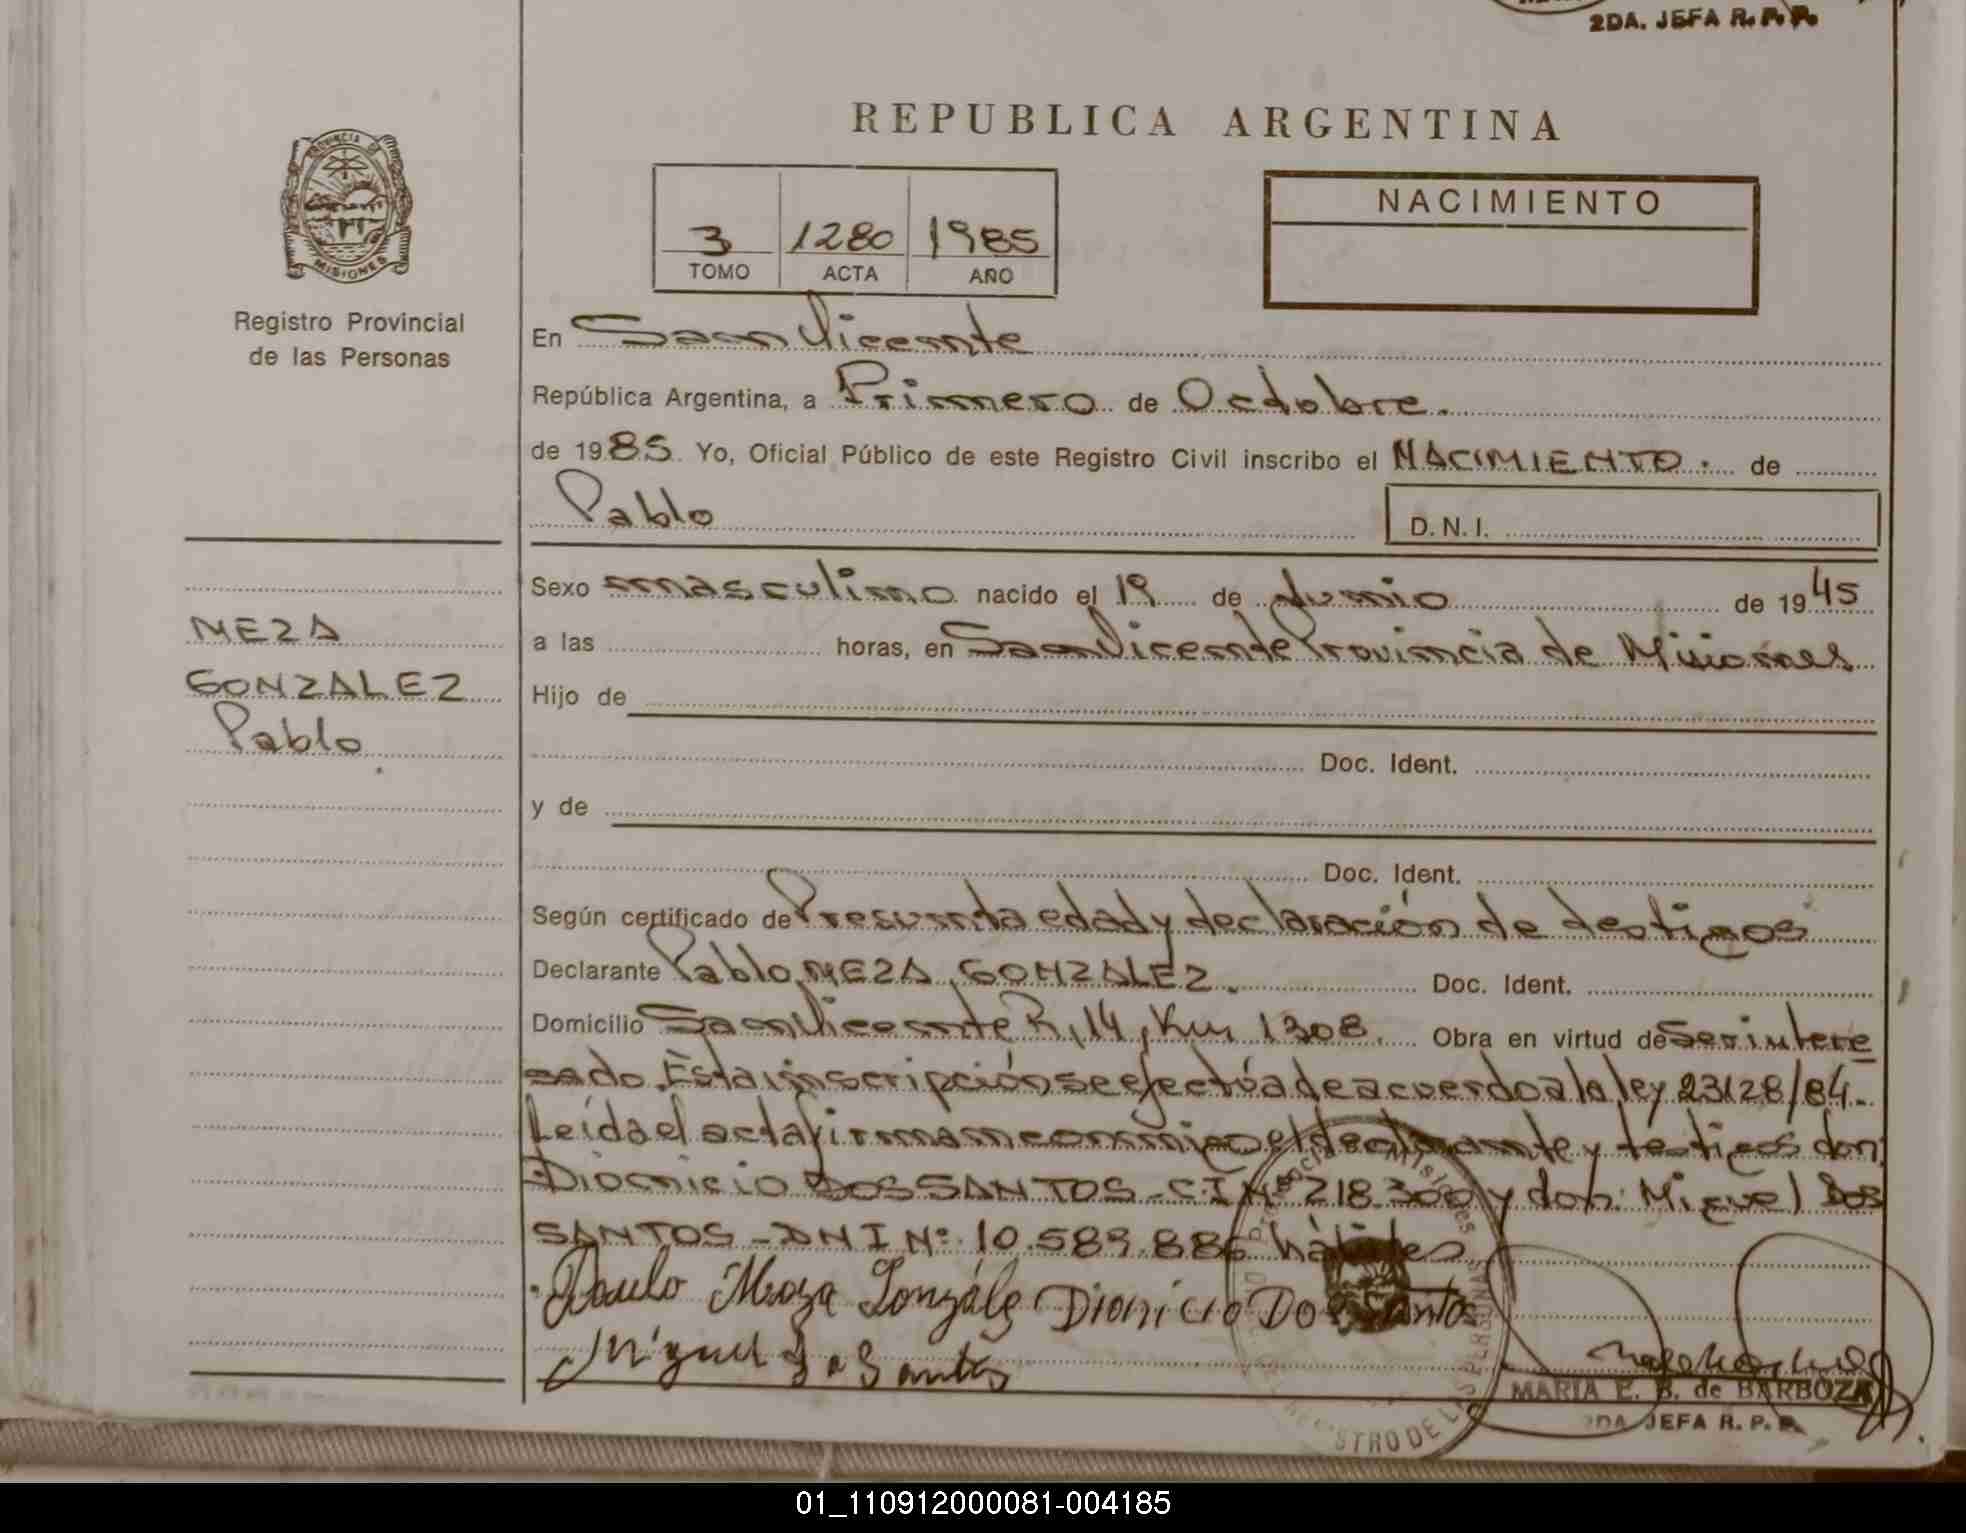 2DA. JEFA R. P. P.
REPUBLICA ARGENTINA
PROVINCIA D
MISIONES
Registro Provincial
de las Personas
3 1280 1985
TOMO ACTA AÑO
NACIMIENTO
En San Vicente
República Argentina, a Primero de Octobre.
de 1985. Yo, Oficial Público de este Registro Civil inscribo el NACIMIENTO. de
Pablo
D.N.I.
MEZA
GONZALEZ
Pablo
Sexo masculino nacido el 19 de Junio de 1945
a las horas, en San Vicente Provincia de Misiones
Hijo de
Doc. Ident.
y de
Doc. Ident.
Según certificado de Presunta edad y declaración de testigos
Declarante Pablo MEZA GONZALEZ. Doc. Ident.
Domicilio San Vicente R, 14, Km 1308. Obra en virtud de Ser intere
sado. Esta inscripción se efectúa de acuerdo a la ley 23128/84.-
Leída el acta firman conmigo el declarante y testigos don:
Dionicio DOS SANTOS - C.I Nº 218.300 y don: Miguel DOS
SANTOS - DNI Nº 10.589.886 hábiles
Paulo Meza Gonzáles Dionicio Dos Santos
Miguel Do Santos
MARIA E. B. de BARBOZA
2DA JEFA R. P. P.
01_110912000081-004185